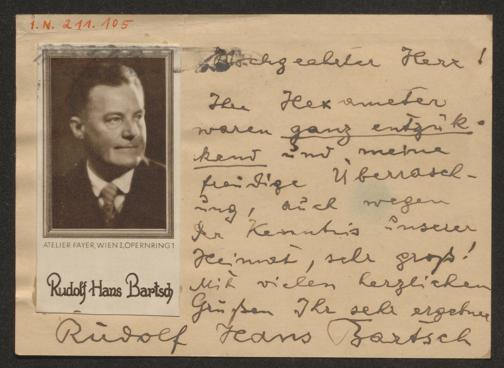 I.N. 211.105
Hochgeehrter Herr!
Ihre Hexameter
waren ganz entzük-
kend und meine
freudige Überrasch-
ung, auch wegen
der Kenntnis unserer
Heimat, sehr groß!
Mit vielen herzlichen
Grüßen Ihr sehr ergebener
Rudolf Hans Bartsch
ATELIER FAYER, WIEN I, OPERNRING 1
Rudolf Hans Bartsch